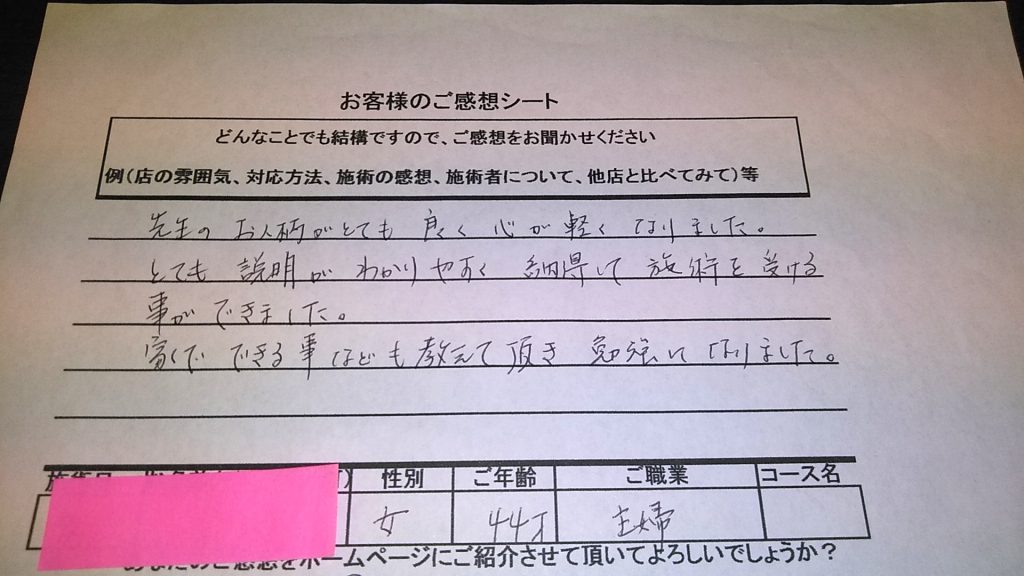 お客様のご感想シート
どんなことでも結構ですので、ご感想をお聞かせください
例(店の雰囲気、対応方法、施術の感想、施術者について、他店と比べてみて)等
先生の お人柄がとても 良く 心が 軽く なりました。
とても 説明が わかりやすく 納得して 施術を 受ける
事が できました。
家で できる事 なども 教えて 頂き 勉強に なりました。
性別 ご年齢 ご職業 コース名
女 44才 主婦
ご感想をホームページにご紹介させて頂いてよろしいでしょうか?